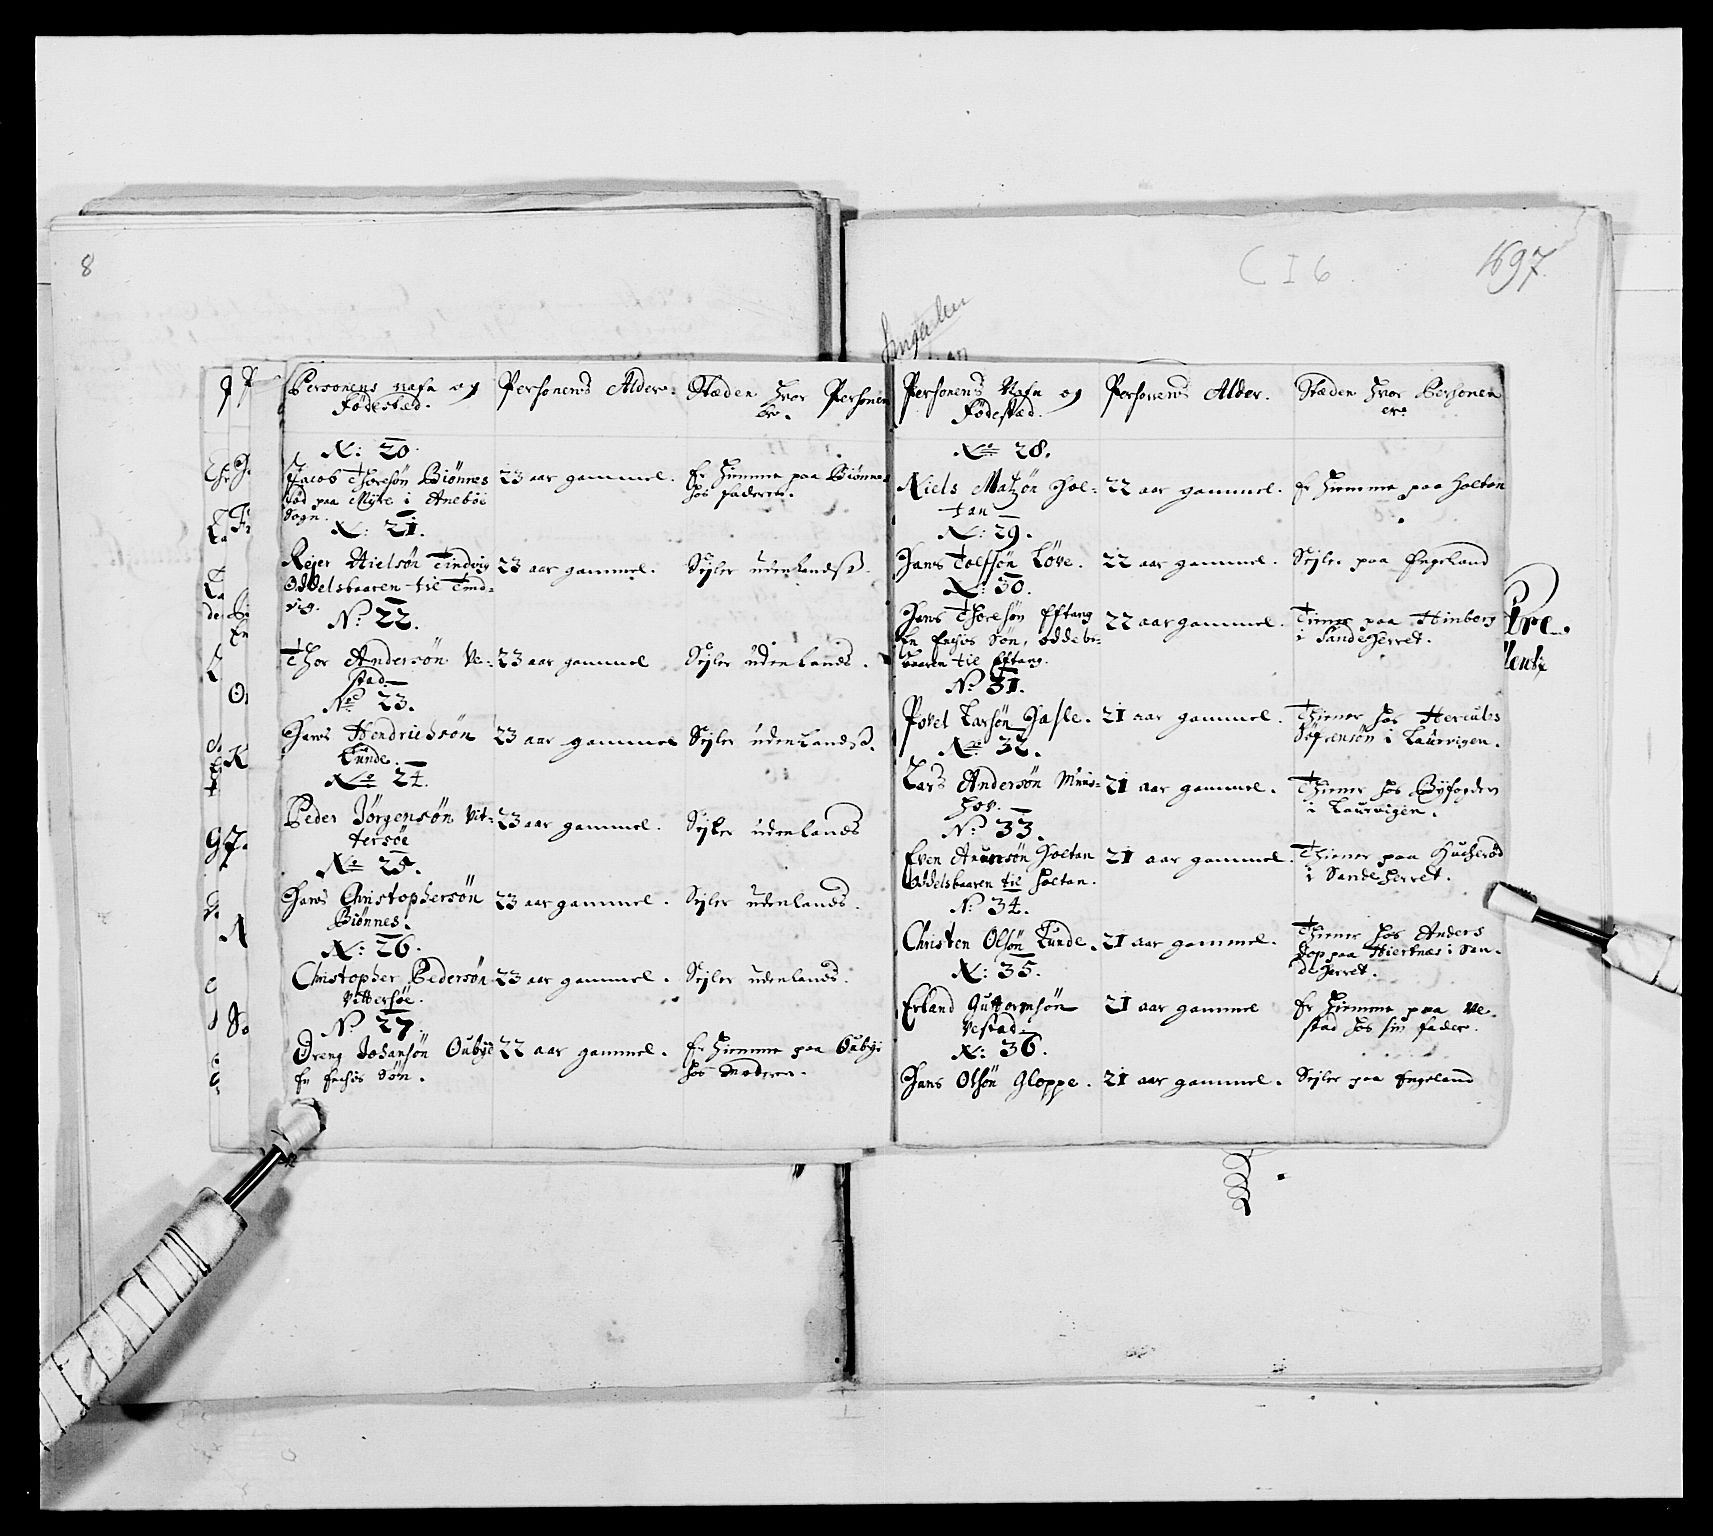 8
C I 6
1697
Personens nafn og Fødestæd.
Personens Alder.
Stæden hvor Personen er.
N: 20.
Jacob Thoresøn Biönnes
ød paa Myre i Aneböe
Sogn.
23 aar gammel.
Er hiemme paa Biönnes
hos faderen.
N: 21.
Rejer Nielsøn Tindvig
Oddelsbaaren til Tind-
vig.
23 aar gammel.
Sejler udenlands.
N: 22.
Thor Andersøn Ve-
stad.
23 aar gammel
Sejler udenlands.
No 23.
Hans Hendrichsøn
Lunde.
23 aar gammel
Sejler udenlands.
No 24.
Peder Jörgensøn Vit-
tersöe
23 aar gammel.
Sejler udenlands
No 25.
Hans Christophersøn
Biönnes.
23 aar gammel.
Sejler udenlands.
N: 26.
Christopher Pedersøn
Vittersöe.
23 aar gammel.
Sejler udenlands.
No 27.
Dreng Johansøn Oubye
En Enchis Søn.
22 aar gammel.
Er hiemme paa Oubye
hos Moderen.
Personens Nafn og
Fødestæd.
Personens Alder.
Stæden hvor Personen
er.
No 28.
Niels Matzøn Hol-
tan
22 aar gammel.
Er hiemme paa Holtan
N: 29.
Hans Tolfsøn Løve.
22 aar gammel.
Sejler paa Engeland
N: 30.
Hans Thoresøn Eftang
En Enchis Søn, oddels-
baaren til Eftang.
22 aar gammel.
Tiener paa Himberg
i Sandeherret.
N: 31.
Povel Larsøn Hasle.
21 aar gammel.
Thiener hos Hercules
Söfrensøn i Laurvigen.
No 32.
Lars Andersøn Muns-
hov.
21 aar gammel.
Thiener hos Byfogden
i Laurvigen.
No 33.
Even Anunsøn Holtan
Oddelsbaaren til Holtan.
21 aar gammel.
Thiener paa Hucherød
i Sandeherret.
N: 34.
Christen Olsøn Lunde.
21 aar gammel.
Thiener hos Anders
paa Hiertnæs i San-
deherret.
N: 35.
Erland Guttormsøn
Vestad.
21 aar gammel
Er hiemme paa Ve-
stad hos sin fader.
N: 36.
Hans Olsøn Gloppe.
21 aar gammel.
Sejler paa Engeland